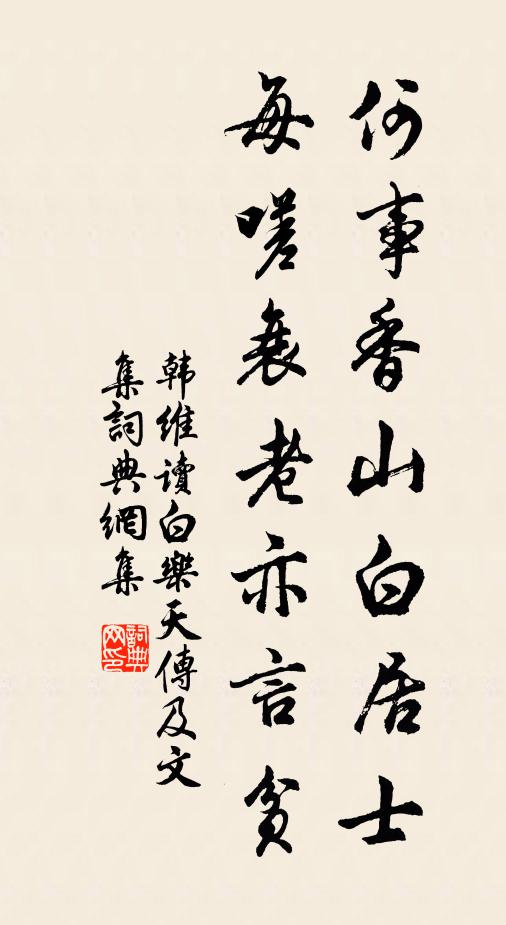 何事香山白居士
每嗟衰老亦言貧
韩維读白樂天傳及文
集詞典網集
詞典
网印